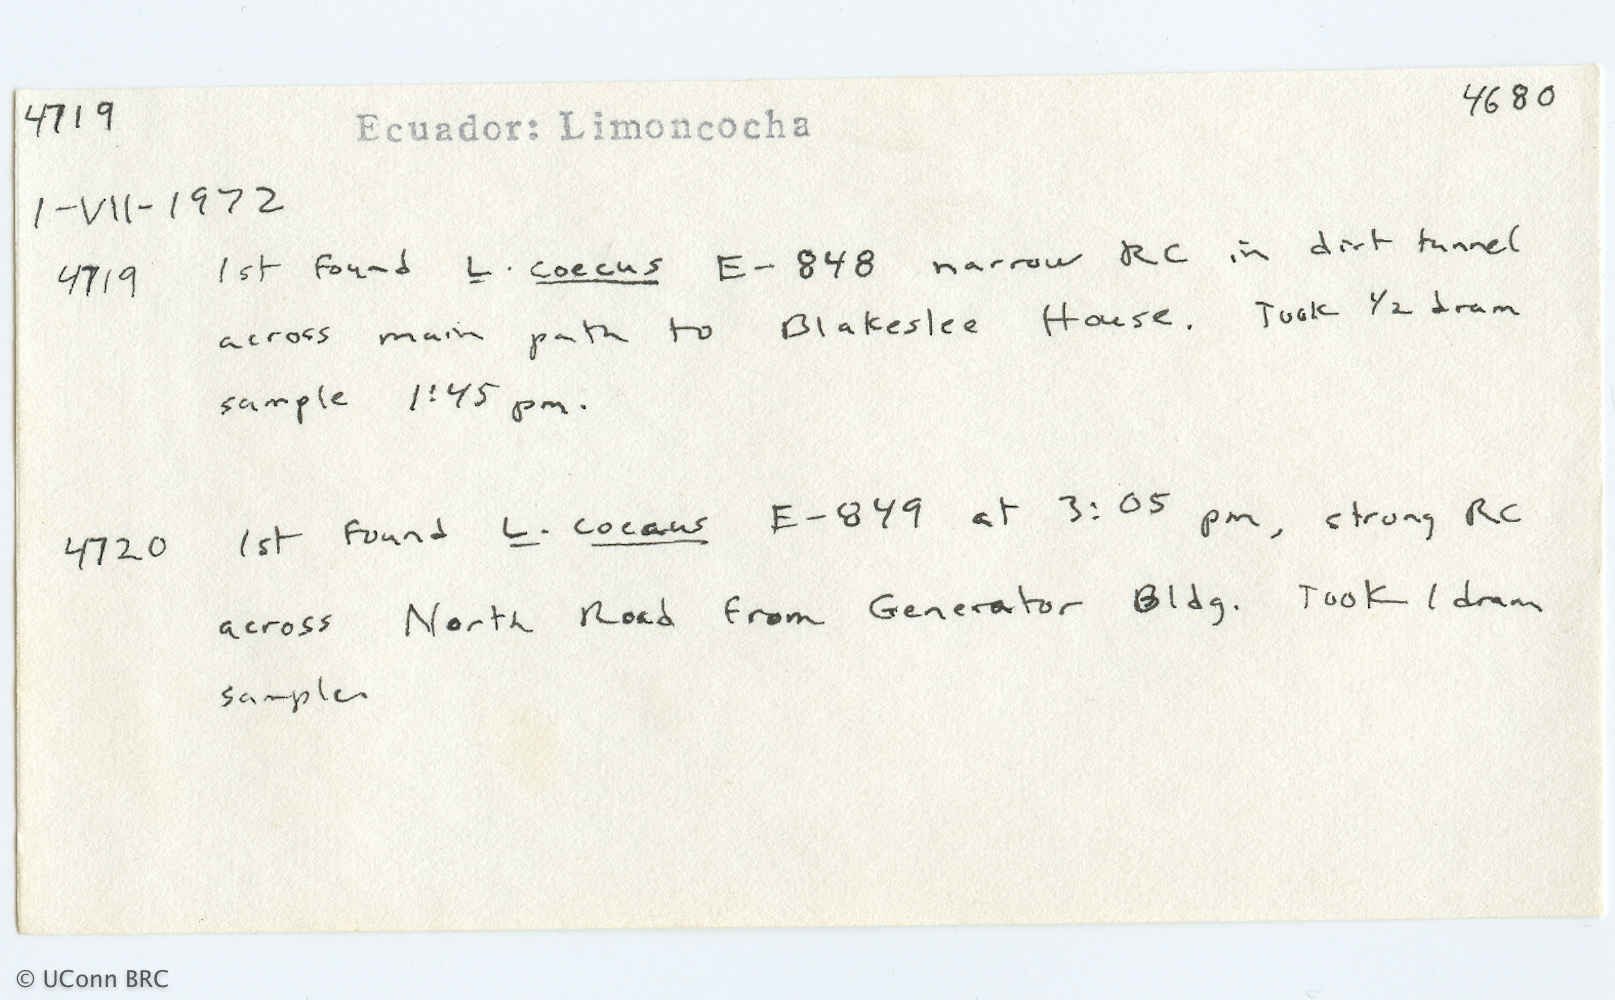 4719 Ecuador: Limoncocha 4680
1-VII-1972
4719 1st found L. coecus E-848 narrow RC in dirt tunnel
across main path to Blakeslee House. Took 1/2 dram
sample 1:45 pm.
4720 1st found L. coecus E-849 at 3:05 pm, strong RC
across North Road from Generator Bldg. Took 1 dram
sample
© UConn BRC